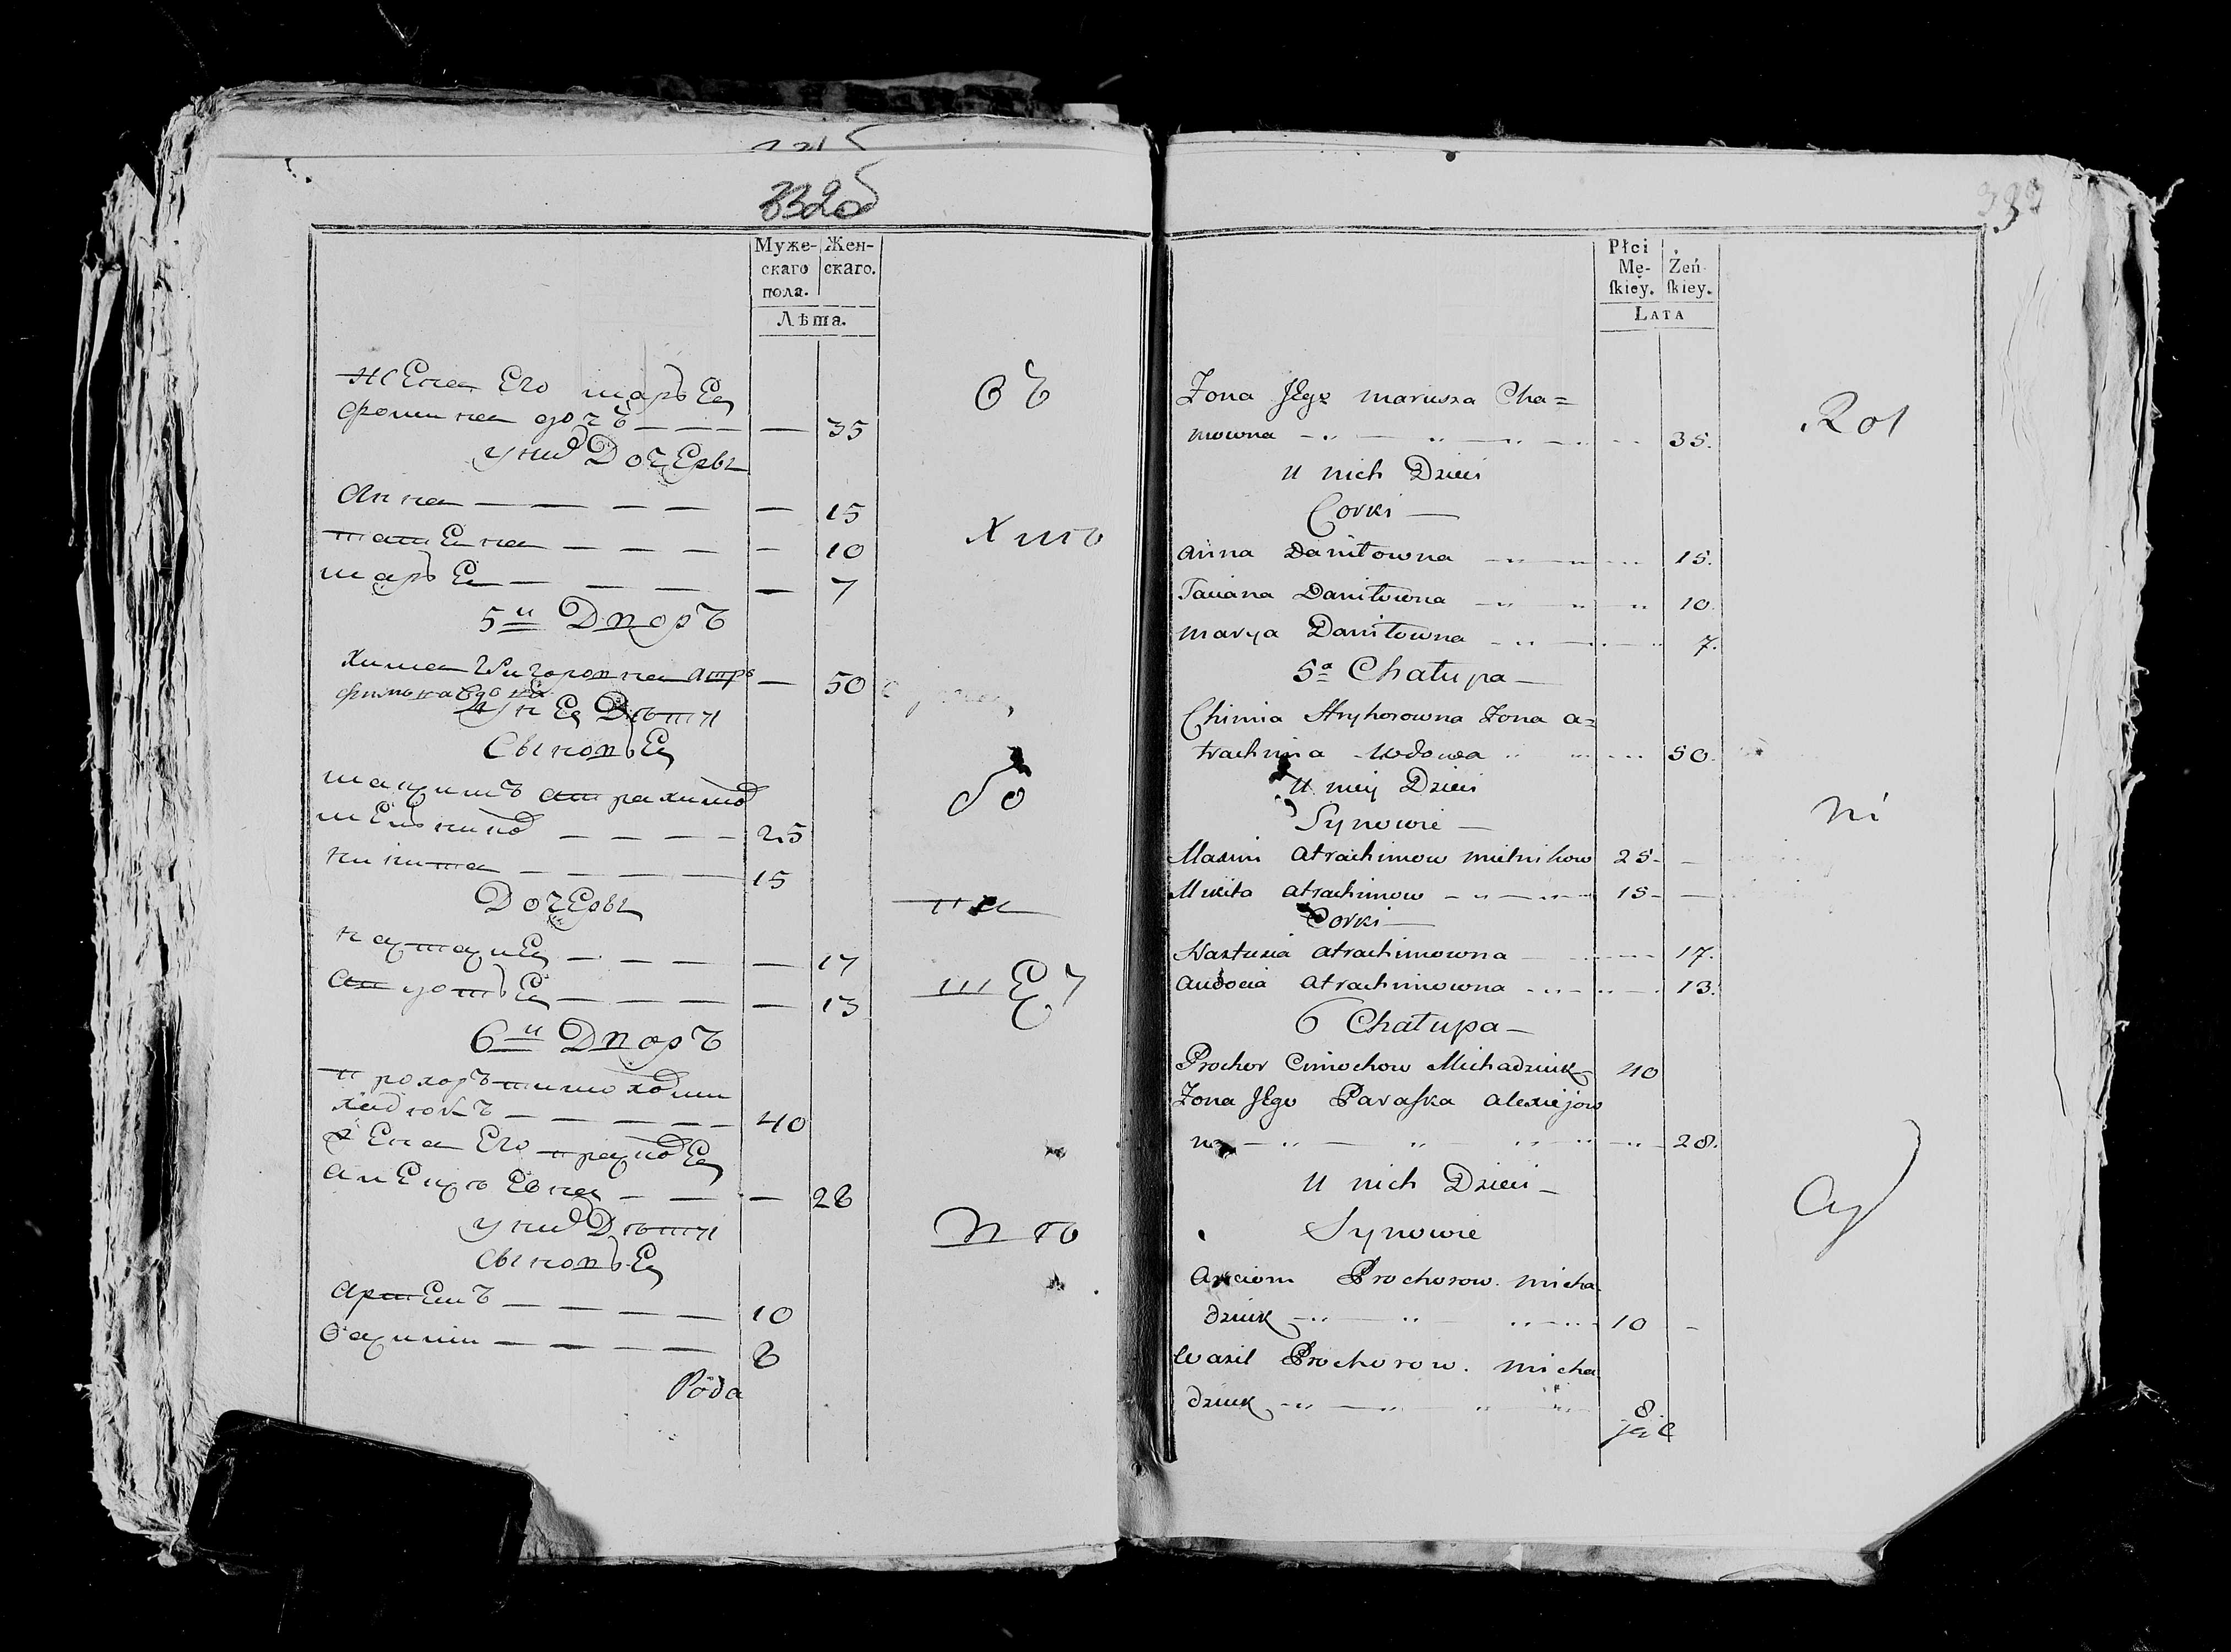 332об
Муже-
скаго
пола.
Жен-
скаго.
Лѣта.
жена Его марья
фомина дочъ — — — — 35
у них Дочерьи
Анна — — — — — 15
татьяна — — — — 10
марья — — — — 7
5й Дворъ
50
у нея Дѣти
Сыновья
максимъ атрахимов
мельников — — — — 25
никита — — — — 15
Дочерьи
настасия — — — — 17
авдотья — — — — 13
6й Дворъ
прохоръ тимохов ми
хадюкъ — — — — 40
жена Его
алексѣевна — — — 28
у них Дѣти
сыновья
артемъ — — — — 10
василий — — — — 8
Рода
333
Płci
Mę-
ſkiey.
Żeń-
ſkiey.
LATA
Żona Jego Marussa Cha=
mowna 35.
U nich Dzieci
Corki —
Anna Daniłowna 15.
Taciana Daniłowna 10.
Marya Daniłowna 7.
5a Chałupa —
Chimia Hryhorowna Żona A=
trachima Wdowa 50.
U niey Dzieci
Synowie —
Maxim Atrachimow Mielnikow 25 —
Mikita Atrachimow 15 —
Corki —
Nastusia Atrachimowna 17.
Audocia Atrachimowna 13.
6 Chałupa —
Prochor Cimochow Michadziuk 40
Żona Jego Paraſka Alexiejow
na 28.
U nich Dzieci —
Synowie
Arciom Prochorow. Micha
dziuk 10 —
Wasil Prochorow. Micha
dziuk 8.
Rol
ni
cy